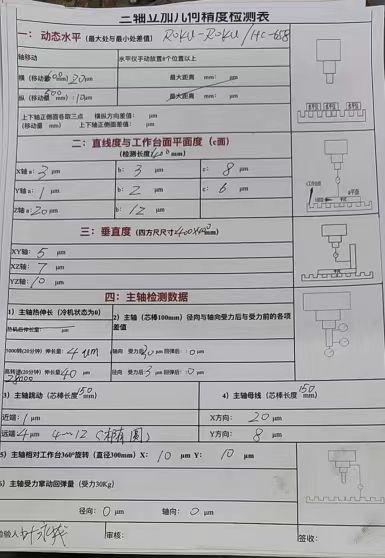 三轴立加几何精度检测表
一: 动态水平 (最大处与最小处差值) ROKU-ROKU/HC-658
轴移动 水平仪手动放置8个位置以上
横 (移动量600mm) 20μm 最大距离 mm: μm
纵 (移动量500mm): 10μm 最大距离 mm: μm
上下轴正侧面各取三点 横纵方向差值: μm
(移动量 mm) 上下轴正侧面差值: μm
二: 直线度与工作台面平面度 (c面)
(检测长度400mm)
X轴a: 3 μm b: 3 μm c: 8 μm
Y轴a: 1 μm b: 2 μm c: 6 μm
Z轴a: 20 μm b: 12 μm
三: 垂直度 (四方尺尺寸400x400mm)
XY轴: 5 μm
XZ轴: 7 μm
YZ轴: 10 μm
四: 主轴检测数据
1) 主轴热伸长 (冷机状态为0)
2) 主轴 (芯棒100mm) 径向与轴向受力后与受力前的各项差值
热机后伸长量: μm
7000转(20分钟) 伸长量: 4 μm 轴向 受力后 μm 回弹后: 0 μm
高转速(20分钟) 伸长量: 40 μm 径向 受力后3 μm 回弹后: 0 μm
28000
3) 主轴跳动 (芯棒长度150mm) 4) 主轴母线 (芯棒长度150mm)
近端: 1 μm X方向: 20 μm
远端: 4 μm 4—12 (椭圆) Y方向: 8 μm
5) 主轴相对工作台360°旋转 (直径300mm) X: 10 μm Y: 10 μm
6) 主轴受力窜动回弹量 (受力30Kg)
径向: 0 μm 轴向: 0 μm
检验人: 审核: 签收: